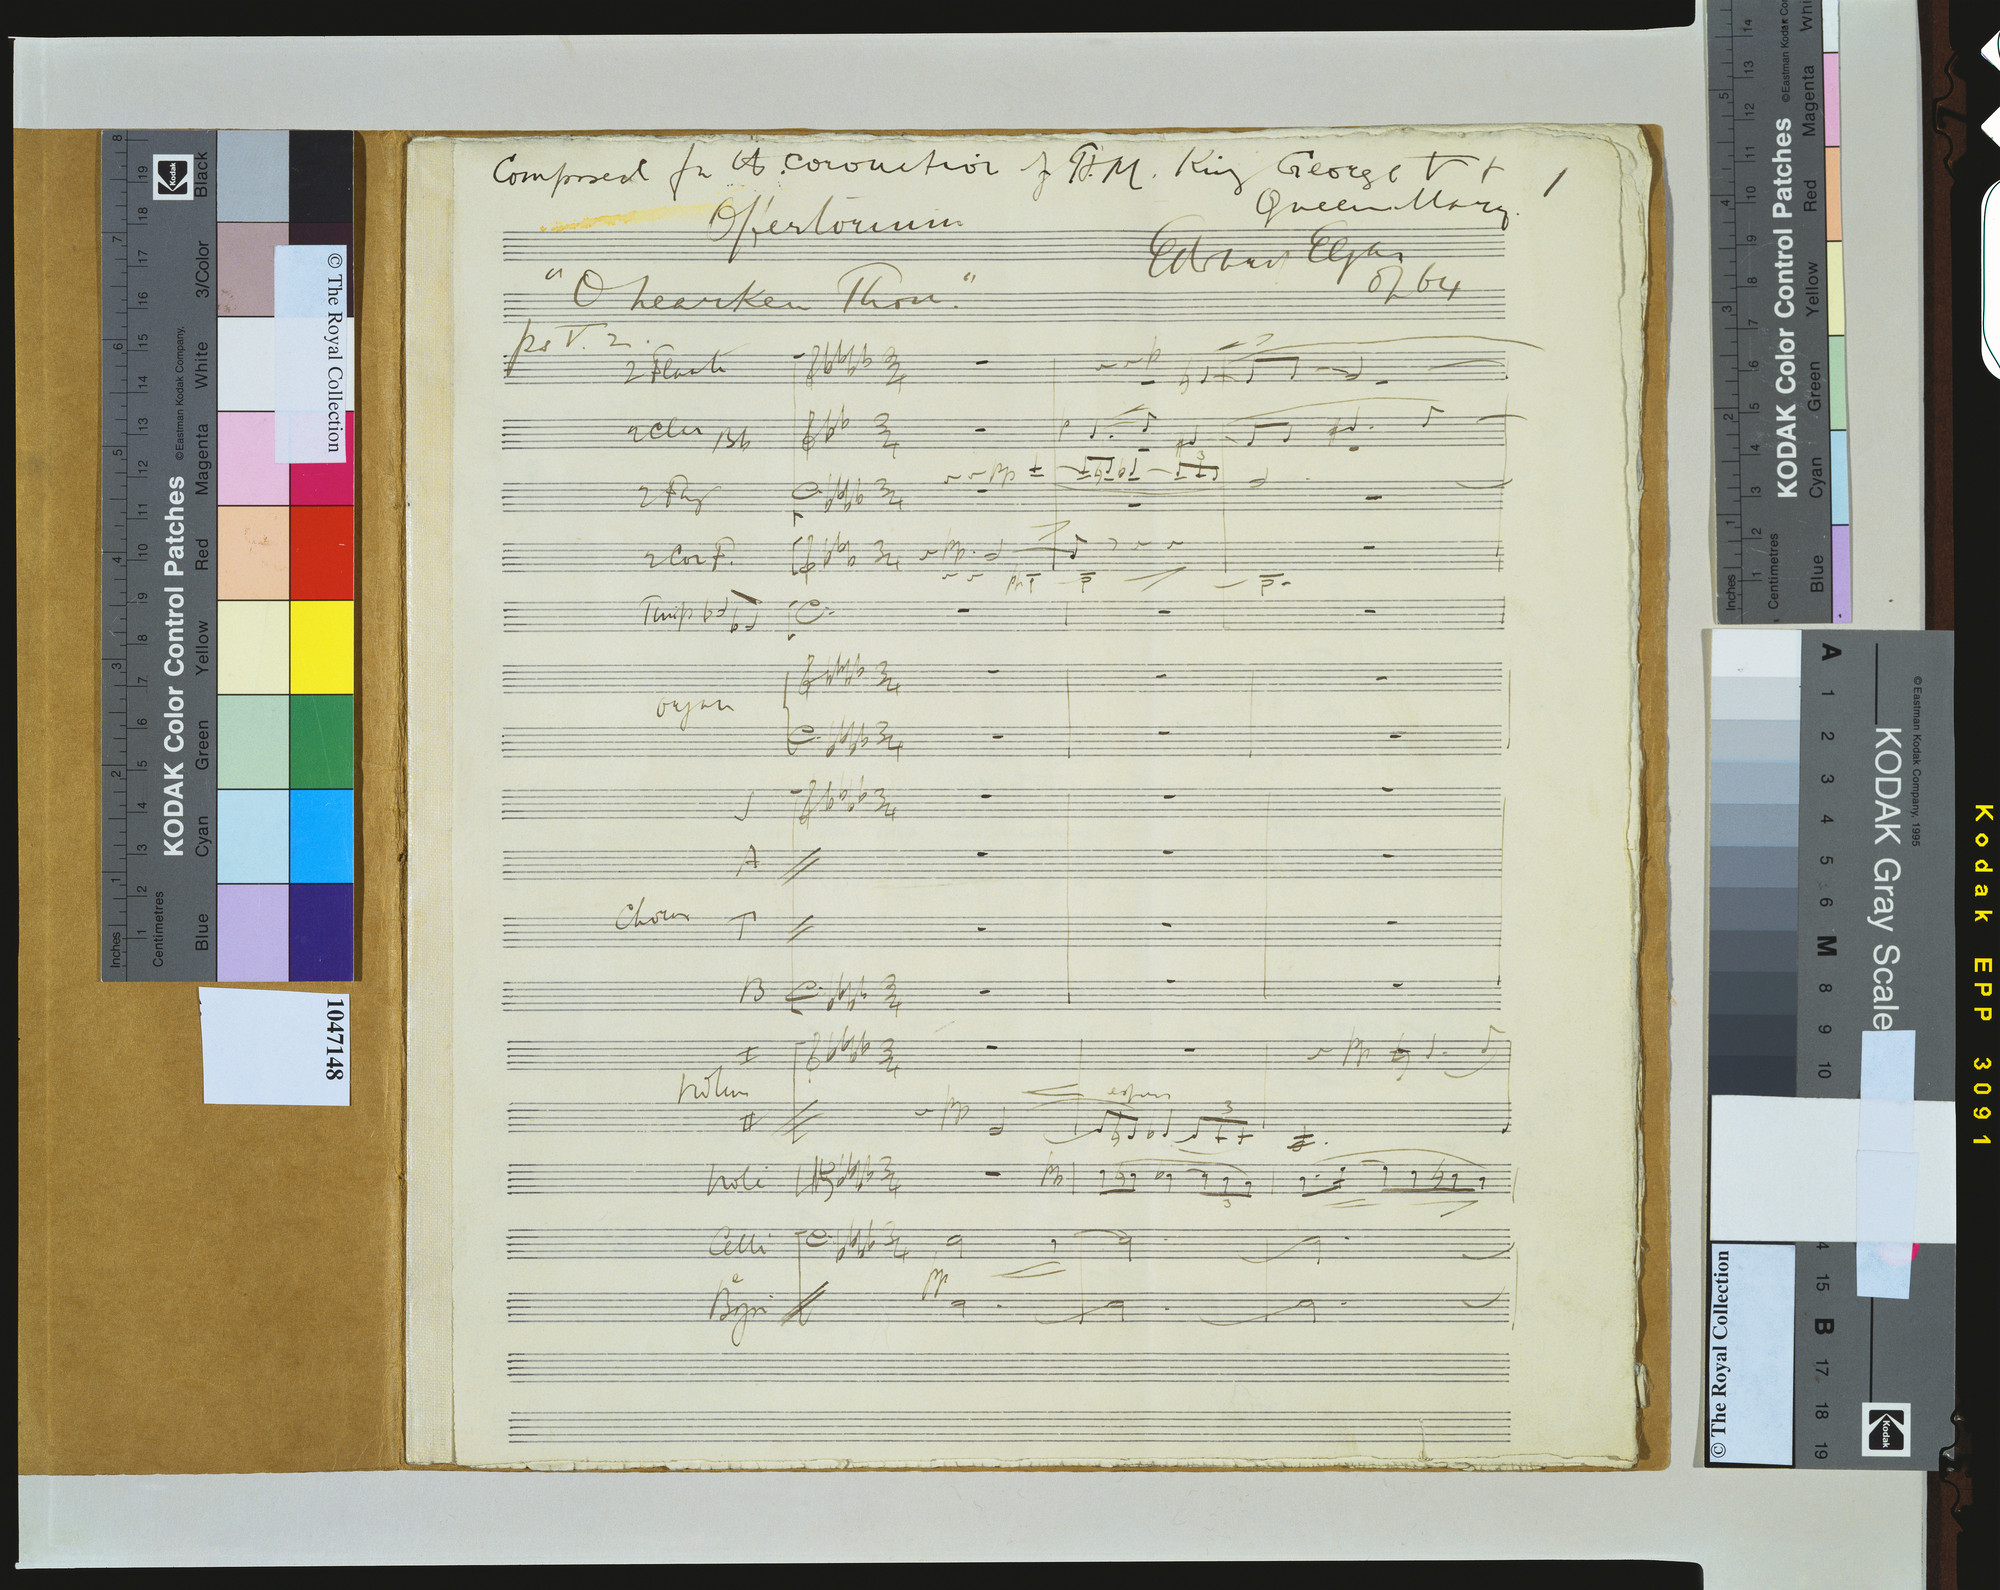 Composed for the coronation of H.M. King George V +
Queen Mary.
1
Offertorium
Edward Elgar
op 64
"O hearken Thou."
ps V. 2.
2 Flauti
2 Clar Bb
2 Fag
2 Cor F.
Timp
organ
S
A
Chorus T
B
I
Violini
II
Viole
Celli
Bassi
pp
3
© The Royal Collection
1047148
KODAK Color Control Patches
© Eastman Kodak Company,
Inches
Centimetres
Blue Cyan Green Yellow Red Magenta White 3/Color Black
Kodak
KODAK Color Control Patches
Inches
Centimetres
Blue Cyan Green Yellow Red Magenta
KODAK Gray Scale
© Eastman Kodak Company, 1995
A 1 2 3 4 5 6 M 8 9 10
15 B 17 18 19
Kodak
© The Royal Collection
Kodak EPP 3091